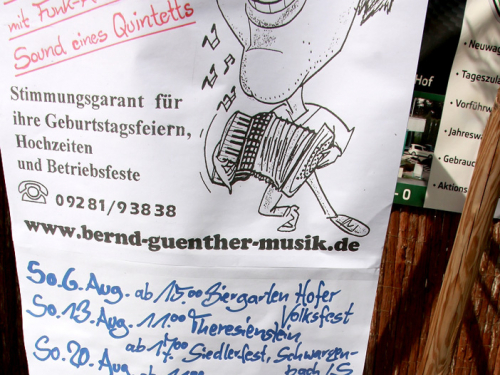 mit Funk-
Sound eines Quintetts
Stimmungsgarant für
ihre Geburtstagsfeiern,
Hochzeiten
und Betriebsfeste
09281/93838
www.bernd-guenther-musik.de
So. 6. Aug. ab 15.00 Biergarten Hofer
Volksfest
So. 13. Aug. 11.00 Theresienstein
So. 20. Aug. ab 14.00 Siedlerfest, Schwarzen-
bach/S
Hof
-0
• Neuwag
• Tageszula
• Vorführw
• Jahreswa
• Gebrauc
• Aktions